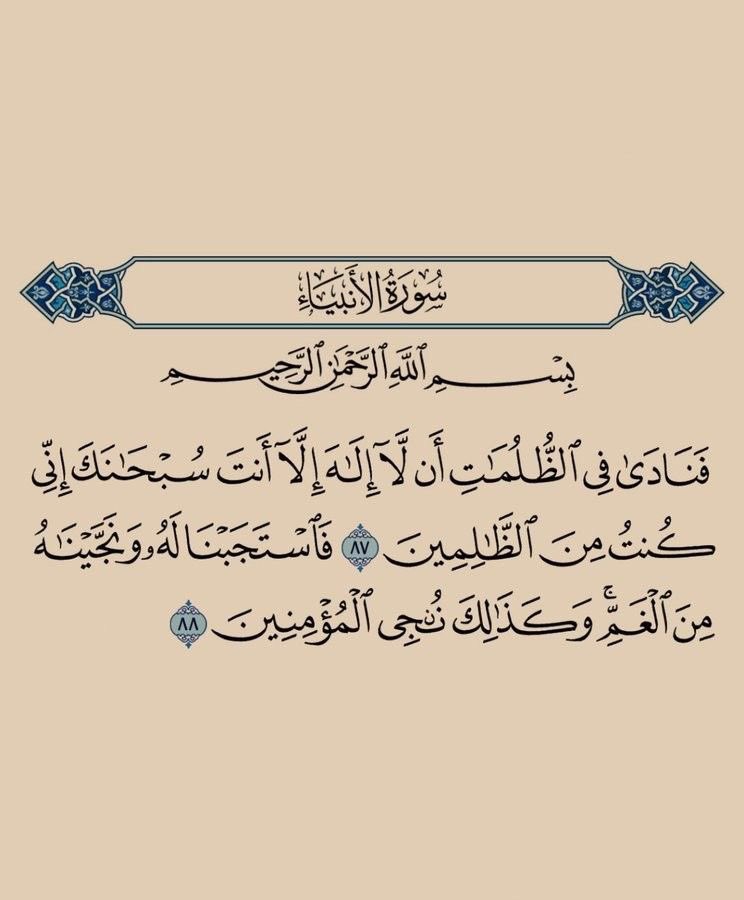 سُورَةُ الأَنبِيَاءِ
بِسۡمِ ٱللَّهِ ٱلرَّحۡمَٰنِ ٱلرَّحِيمِ
فَنَادَىٰ فِي ٱلظُّلُمَٰتِ أَن لَّآ إِلَٰهَ إِلَّآ أَنتَ سُبۡحَٰنَكَ إِنِّي
كُنتُ مِنَ ٱلظَّٰلِمِينَ ٨٧ فَٱسۡتَجَبۡنَا لَهُۥ وَنَجَّيۡنَٰهُ
مِنَ ٱلۡغَمِّۚ وَكَذَٰلِكَ نُـۨجِي ٱلۡمُؤۡمِنِينَ ٨٨